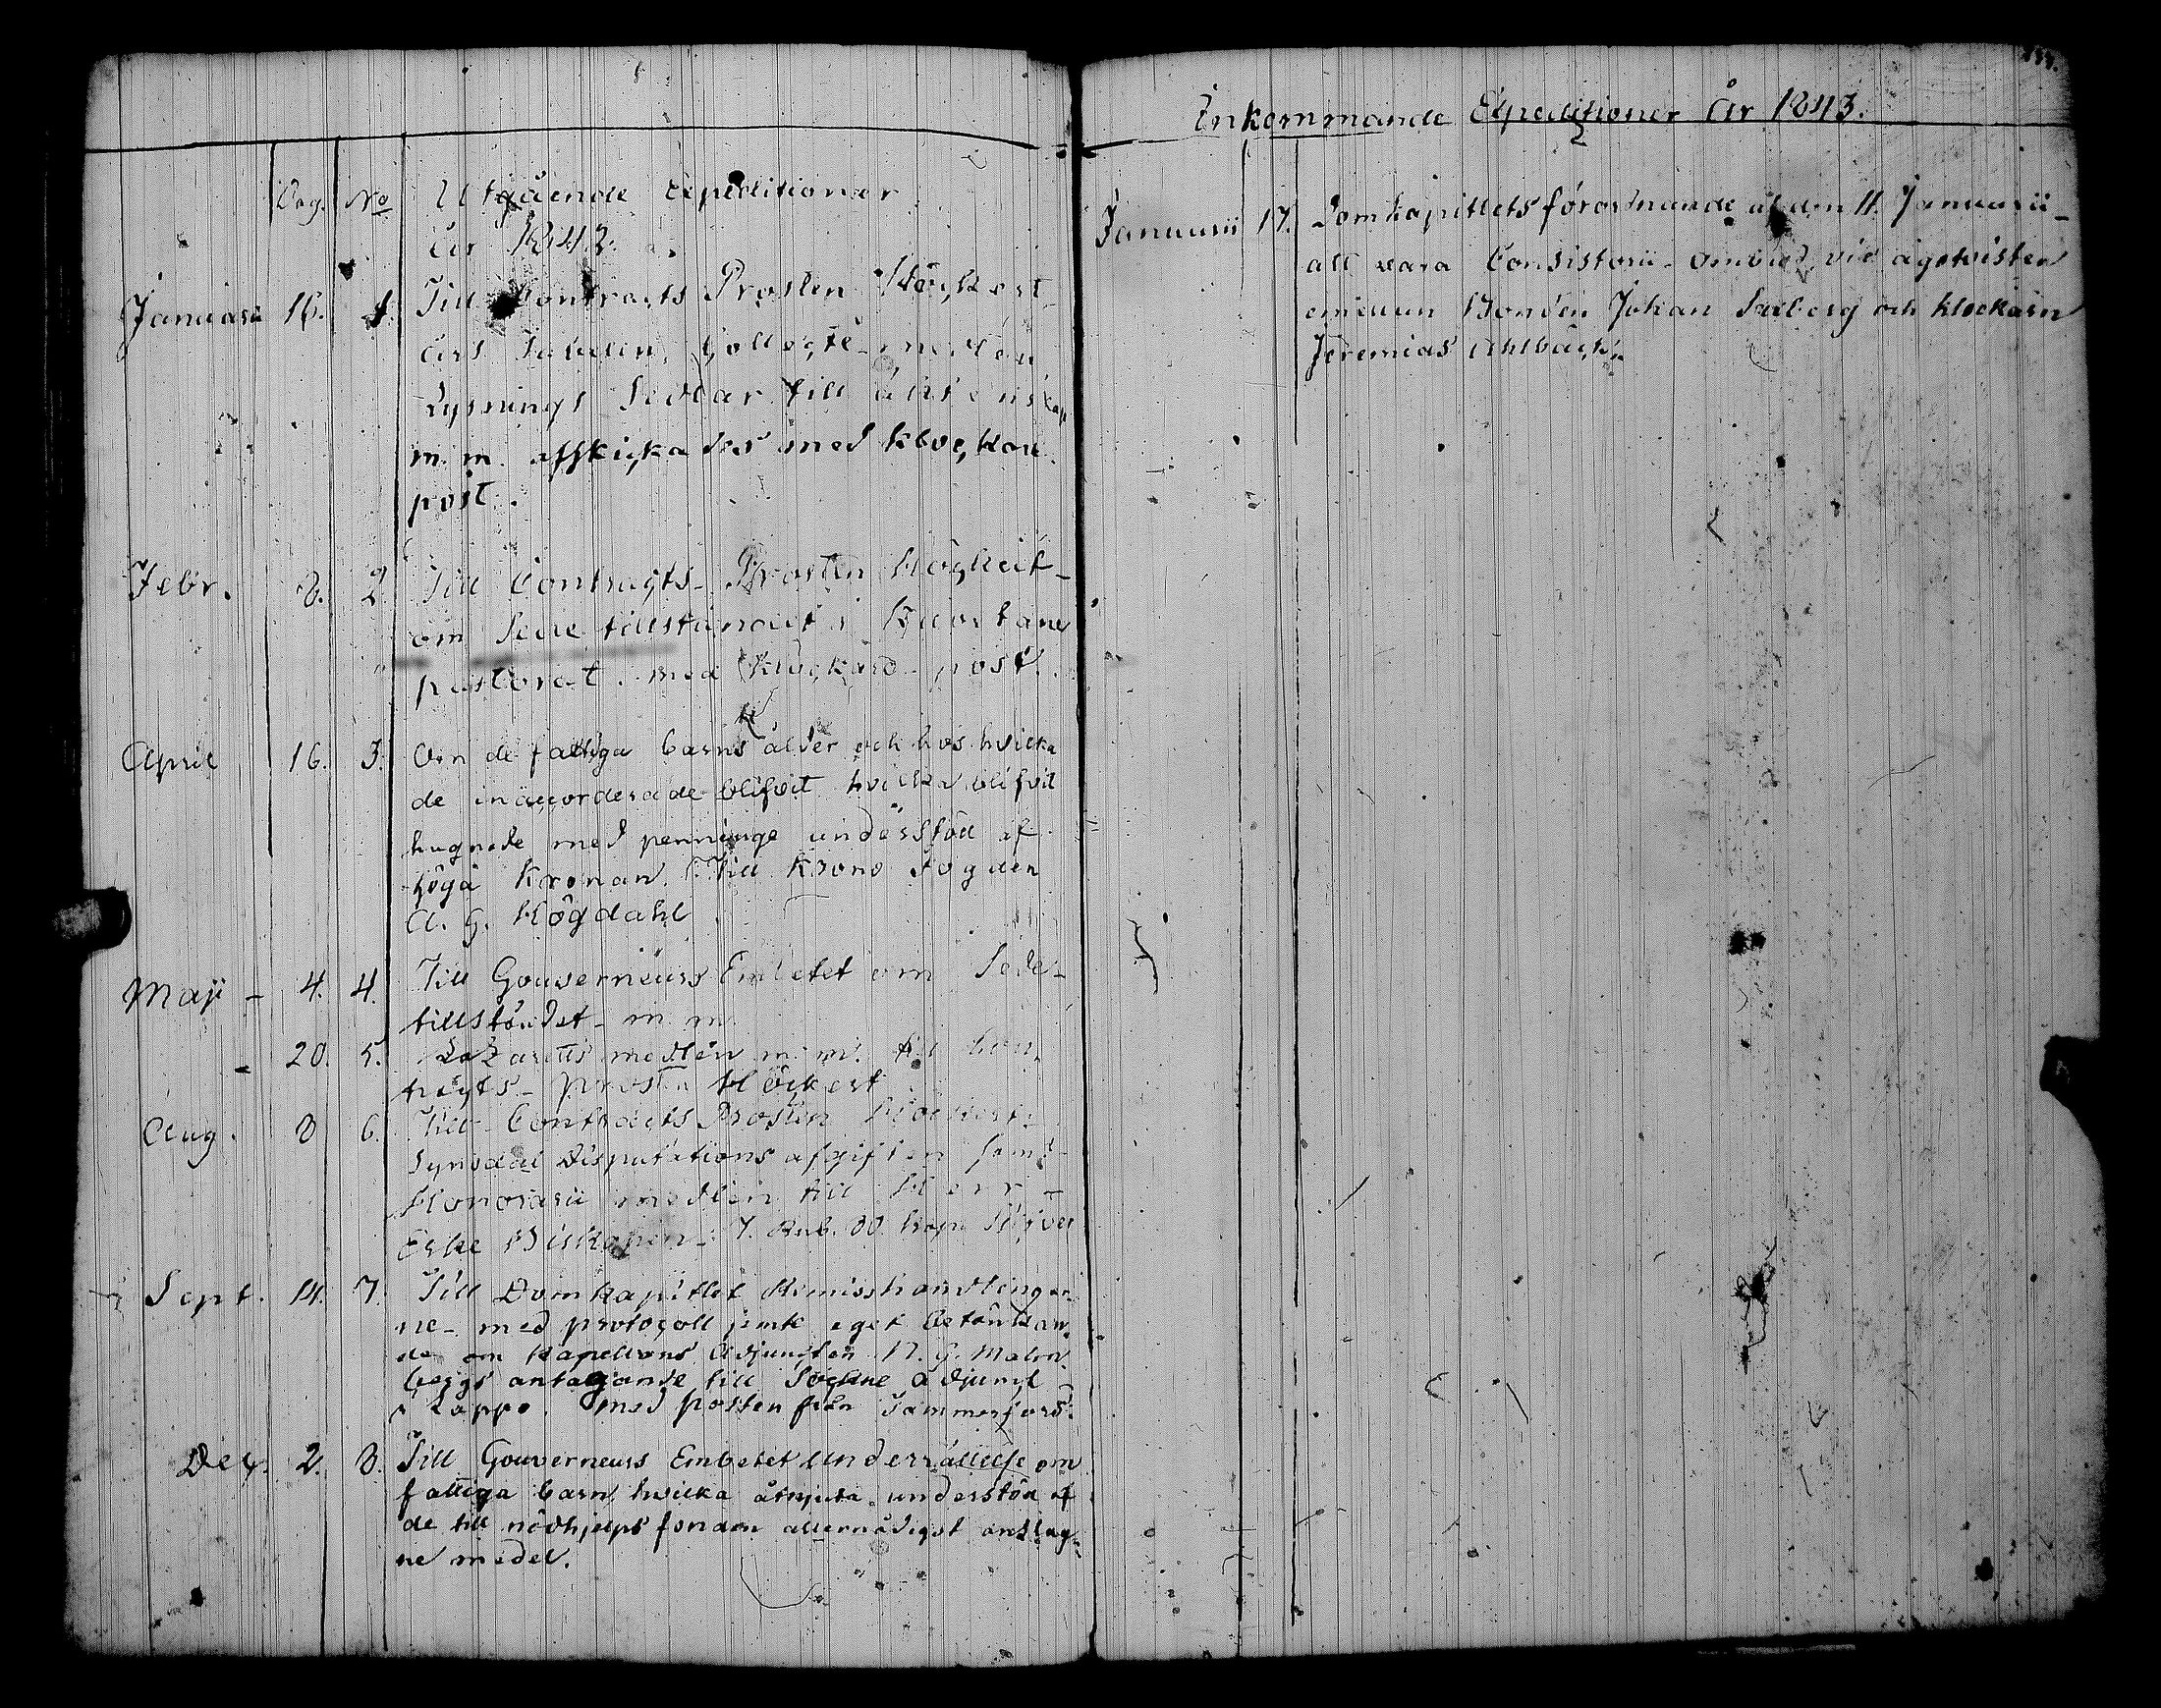 Dag. No Utgående Expeditioner
År 1842.
Januarii 16. 1. Till Contracts Prosten Höckert
Års Tabellen, Collegte-medlen
Lysnings Sedlar till
m. m. afskickades med klockare
post.
Febr. 8. 2. Till Contragts-Prosten Höckert
om Sede tillståndet i Kuortane
pastorat. med klockare-post.
April 16. 3. Om de fattiga barns ålder och hos hvilka
de inackorderade blifvit hvilka blifvit
hugnade med penninge understöd af
höga Kronan. Till Krono Fogden
A. G. Högdahl
Maji - 4. 4. Till Gouverneurs Embetet om Sede-
tillståndet - m. m.
- 20. 5. Lazaretts medlen m. m. till Con-
tragts-prosten Höckert
Aug. 8 6. Till Contracts Prosten Höckert.
Synodal Disputations afgiften samt
Honorarii medlen till Herr
Erke Biskopen - 7. Rub. 30 kop. Silfver
Sept. 14. 7. Till Domkapitlet Remisshandlingar-
ne - med protocoll jemte eget betänkan-
de om Kapellans Adjuncten N. G. Malm-
bergs antagande till Sockne adjunct
i Lappo. med posten från Tammerfors.
Dec. 2. 8. Till Gouverneurs Embetet Underrättelse om
fattiga barn, hvilka åtnjuta understöd af
de till nödhjelps fonden allernådigst anslag-
ne medel.
Inkommande Expeditioner År 1843.
Januarii 17. Domkapitlets förordnande af den 11. Januarii -
att vara Consistorii-Ombud vid ägotvisten
emellan Bonden Johan Saxberg och klockarn
Jeremias Ahlbäck.